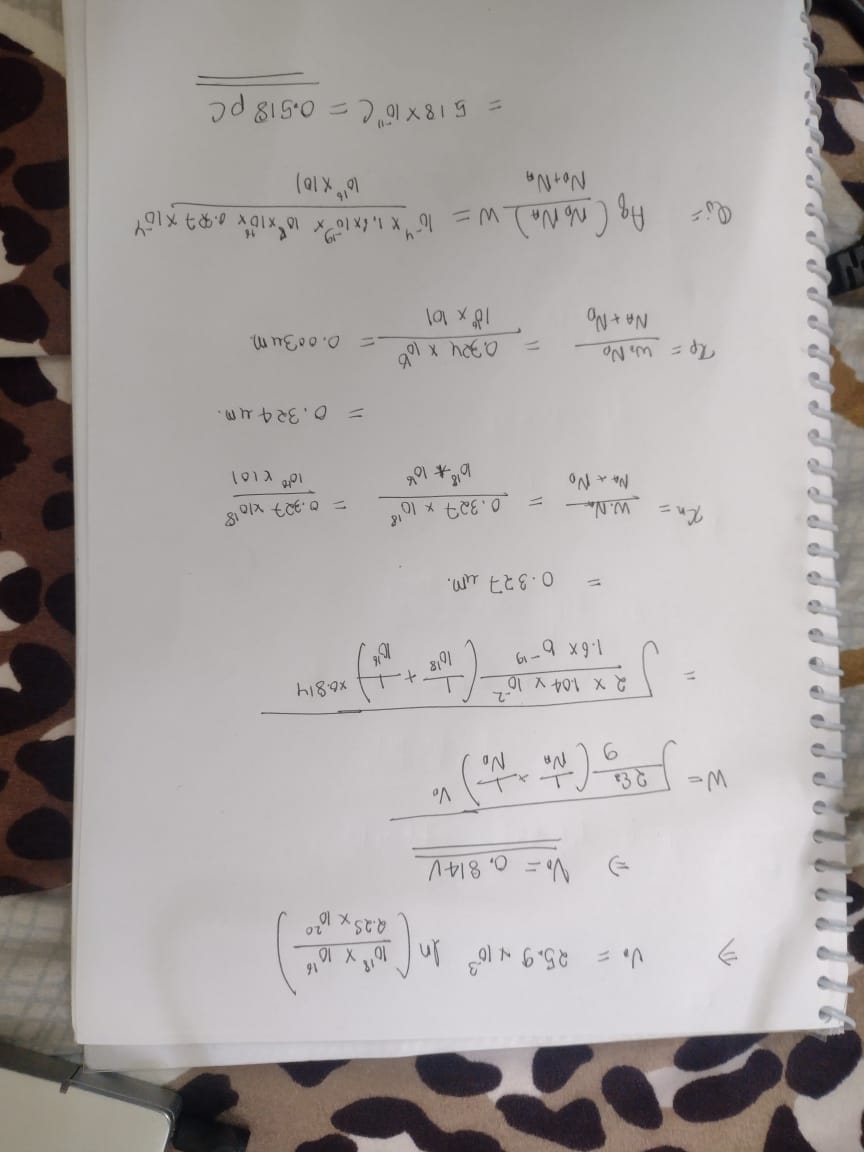 ⇒ V₀ = 25.9 × 10³ ln (10¹⁸ × 10¹⁶ / 2.25 × 10²⁰)
⇒ V₀ = 0.814V
W = √(2εs / q (1/NA × 1/ND) V₀
= √(2 × 1.04 × 10⁻² / 1.6 × 10⁻¹⁹ (1/10¹⁸ + 1/10¹⁶) × 0.814
= 0.327 um.
xn = W.NA / NA + ND = 0.327 × 10¹⁸ / 10¹⁸ + 10¹⁶ = 0.327 × 10¹⁸ / 10¹⁶ × 101
= 0.324 um.
xp = W. ND / NA + ND = 0.324 × 10¹⁶ / 10¹⁶ × 101 = 0.003um.
Qj = Aq (ND NA) / ND + NA W = 10⁻⁴ × 1.6 × 10⁻¹⁹ × 10¹⁸ × 10¹⁶ × 0.327 × 10⁻⁴ / 10¹⁶ × 101
= 5.18 × 10⁻¹¹ C = 0.518 pC